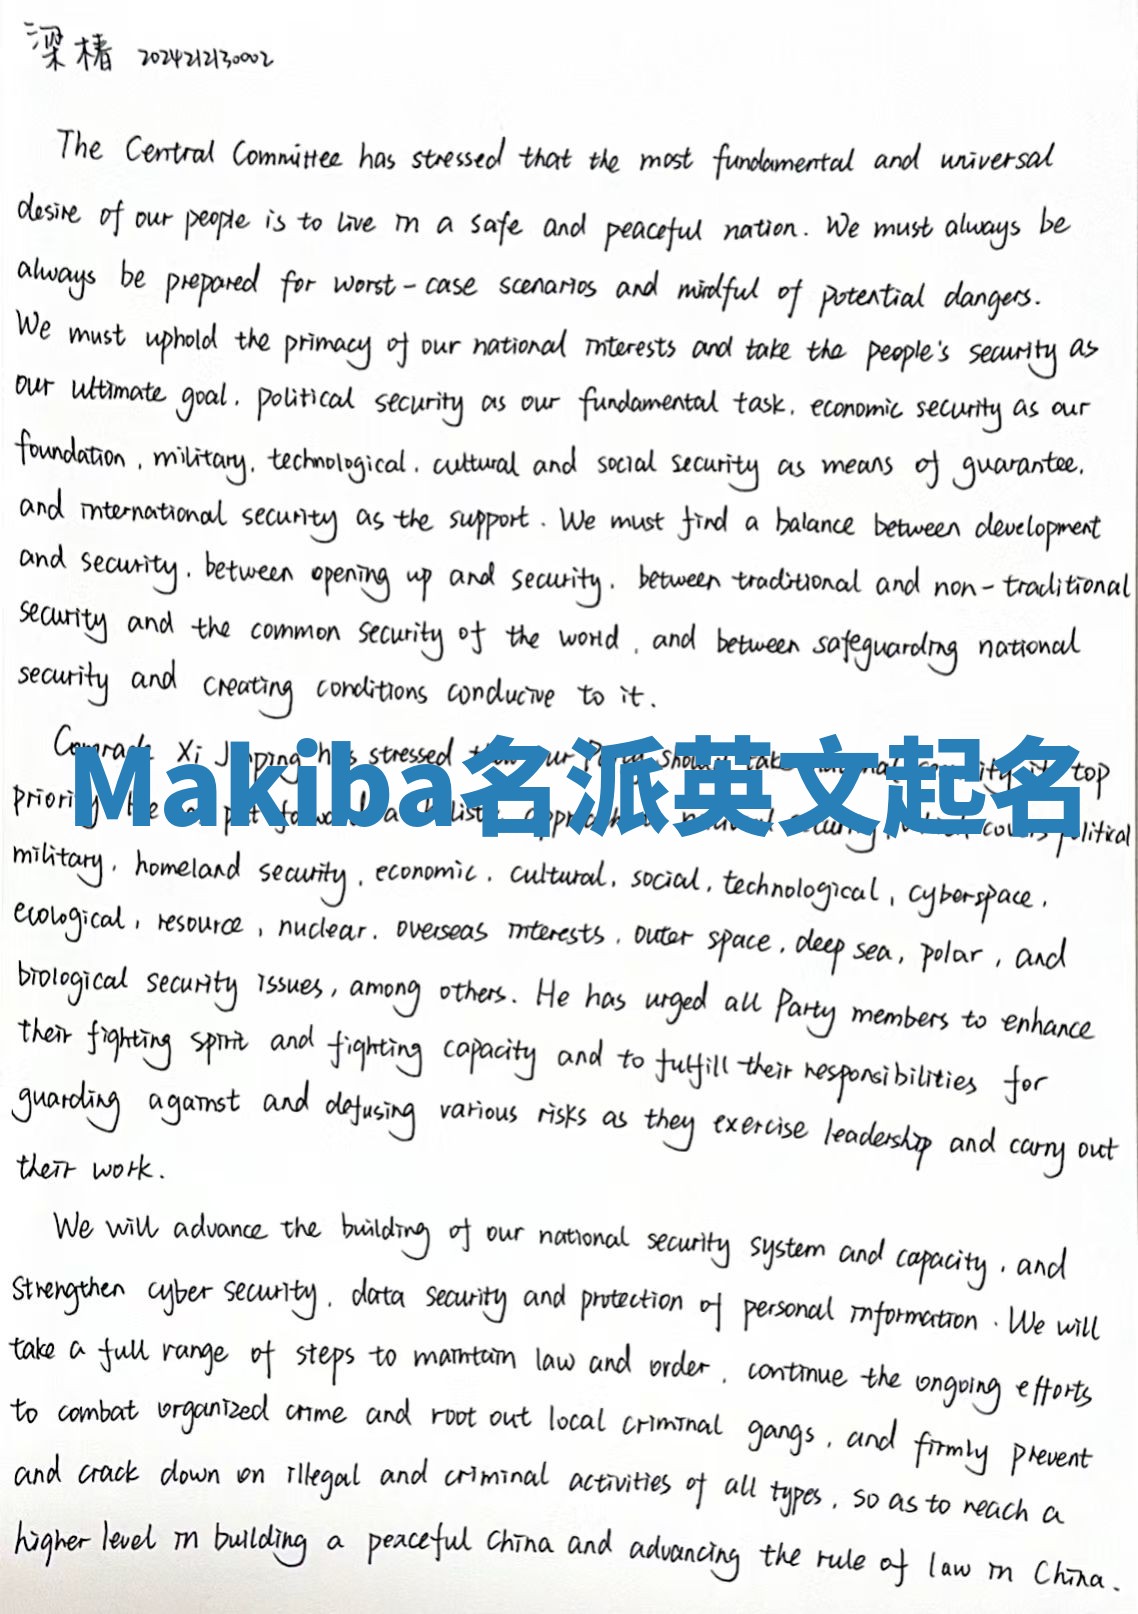 梁椿 2024212130002
The Central Committee has stressed that the most fundamental and universal
desire of our people is to live in a safe and peaceful nation. We must always be
always be prepared for worst-case scenarios and mindful of potential dangers.
We must uphold the primacy of our national interests and take the people's security as
our ultimate goal, political security as our fundamental task, economic security as our
foundation, military, technological, cultural and social security as means of guarantee,
and international security as the support. We must find a balance between development
and security, between opening up and security, between traditional and non-traditional
security and the common security of the world, and between safeguarding national
security and creating conditions conducive to it.
Xi stressed top
Makiba名派英文起名
political
military, homeland security, economic, cultural, social, technological, cyberspace,
ecological, resource, nuclear, overseas interests, outer space, deep sea, polar, and
biological security issues, among others. He has urged all Party members to enhance
their fighting spirit and fighting capacity and to fulfill their responsibilities for
guarding against and defusing various risks as they exercise leadership and carry out
their work.
We will advance the building of our national security system and capacity, and
strengthen cyber security, data security and protection of personal information. We will
take a full range of steps to maintain law and order, continue the ongoing efforts
to combat organized crime and root out local criminal gangs, and firmly prevent
and crack down on illegal and criminal activities of all types, so as to reach a
higher level in building a peaceful China and advancing the rule of law in China.